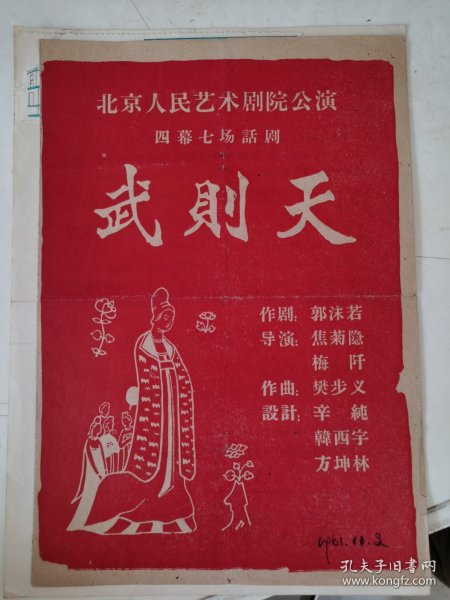 北京人民艺术剧院公演
四幕七场話剧
武則天
作剧：郭沫若
导演：焦菊隐
梅阡
作曲：樊步义
設計：辛純
韓西宇
方坤林
孔夫子旧书网
www.kongfz.com